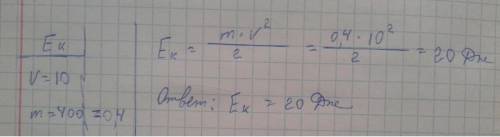 Eк
V = 10
m = 400 = 0,4
Eк = m · v² / 2 = 0,4 · 10² / 2 = 20 Дж
Ответ: Eк = 20 Дж